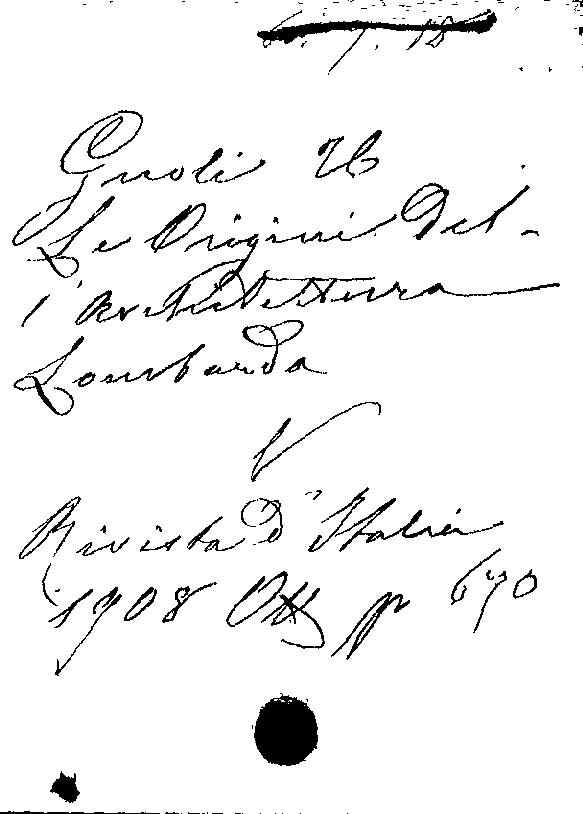 Gnoli U
Le Origini Del-
l'Architettura
Lombarda
V
Rivista d'Italia
1908 Ott p 670